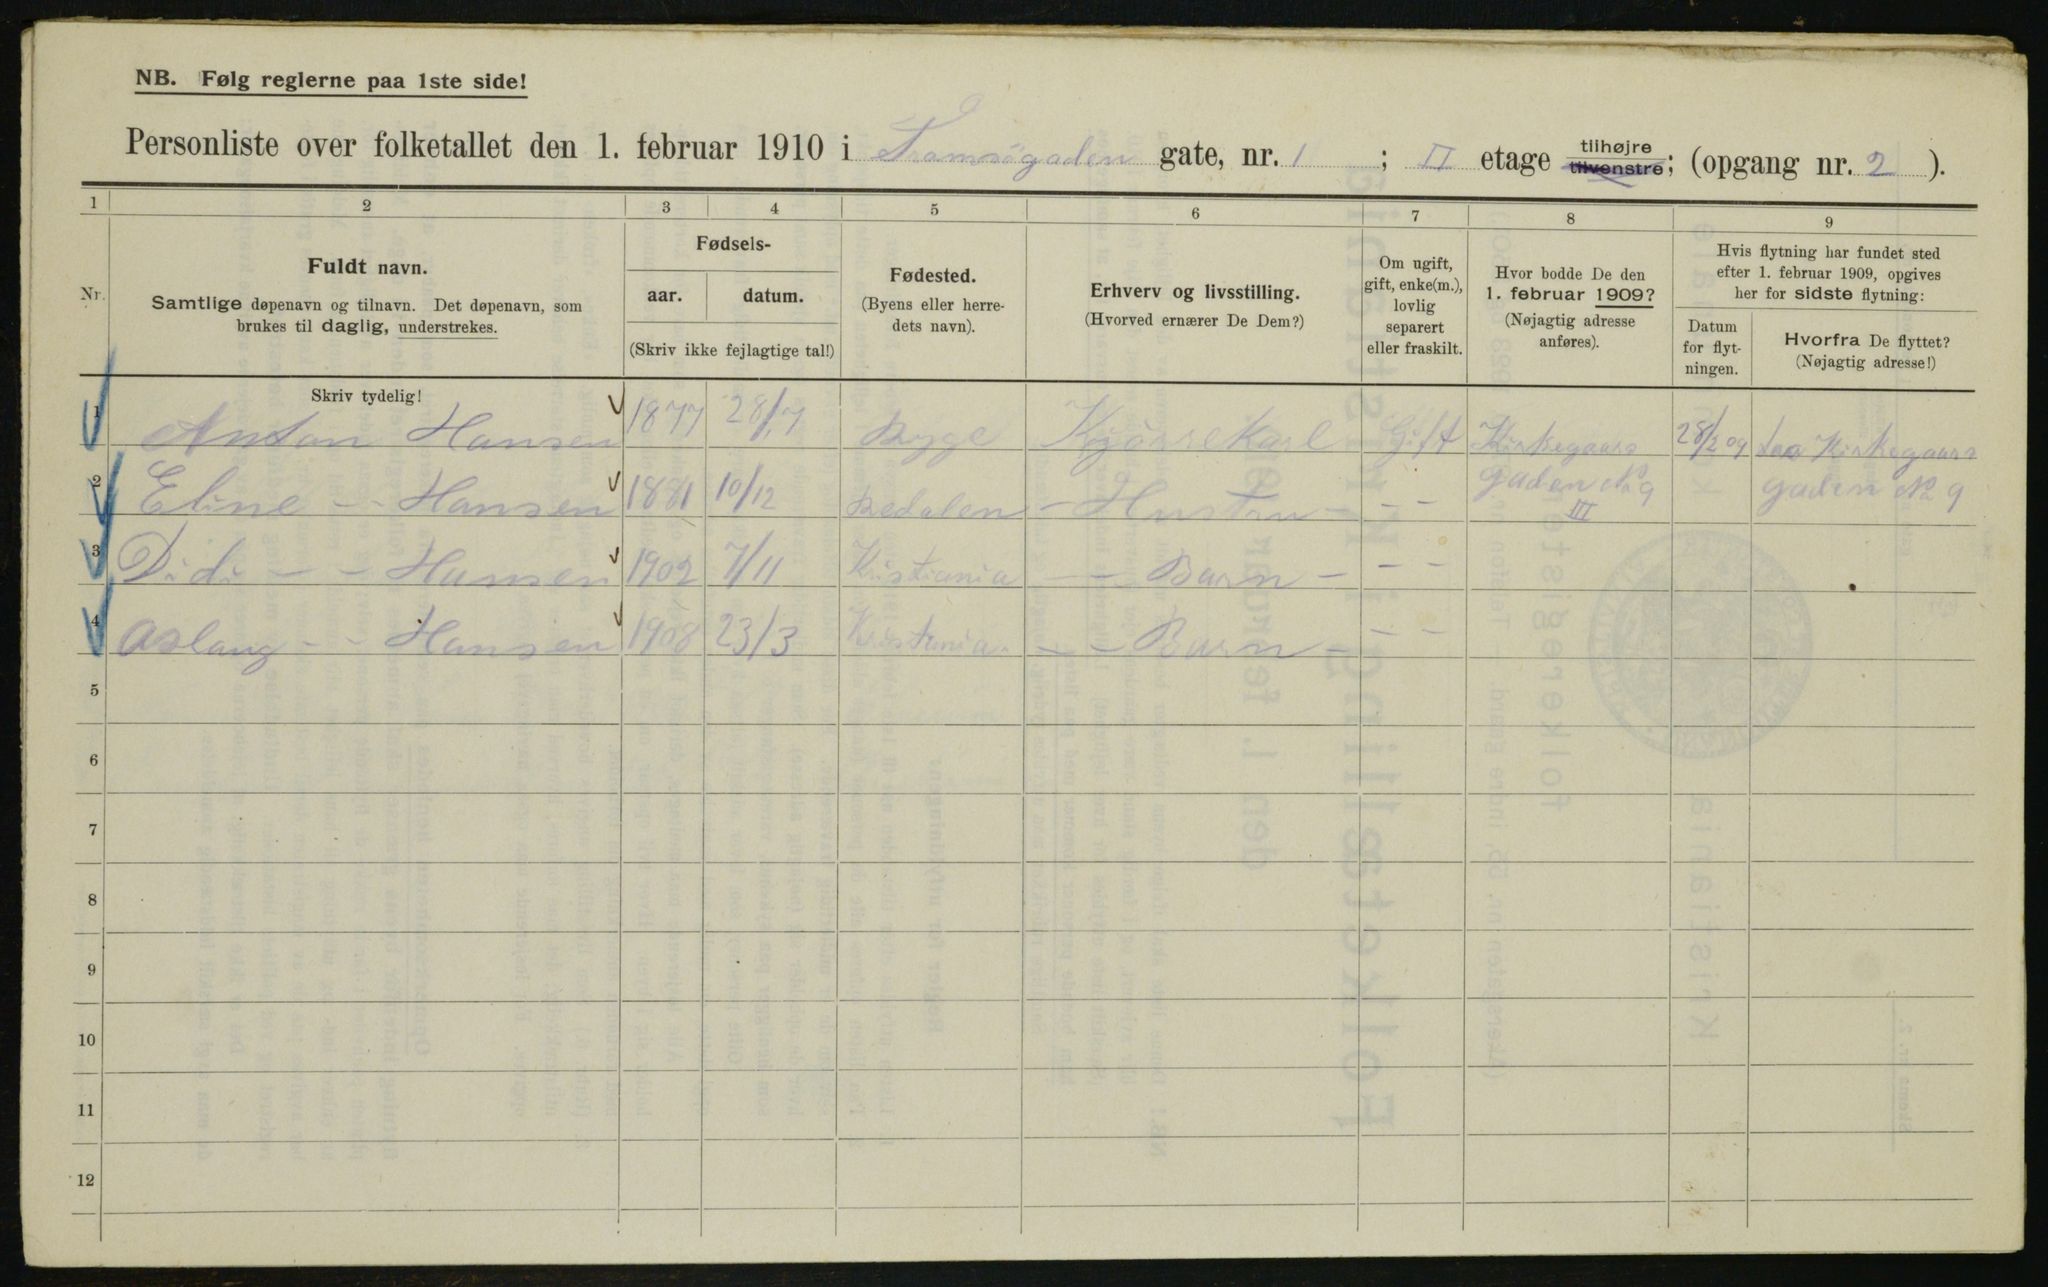 NB. Følg reglerne paa 1ste side!
Personliste over folketallet den 1. februar 1910 i Tromsögaden gate, nr. 1 ; II etage tilhøjre tilvenstre; (opgang nr. 2 ).
1 2 3 4 5 6 7 8 9
Nr.
Fuldt navn.
Samtlige døpenavn og tilnavn. Det døpenavn, som
brukes til daglig, understrekes.
Fødsels-
aar. datum.
(Skriv ikke fejlagtige tal!)
Fødested.
(Byens eller herre-
dets navn).
Erhverv og livsstilling.
(Hvorved ernærer De Dem?)
Om ugift,
gift, enke(m.),
lovlig
separert
eller fraskilt.
Hvor bodde De den
1. februar 1909?
(Nøjagtig adresse
anføres).
Hvis flytning har fundet sted
efter 1. februar 1909, opgives
her for sidste flytning:
Datum
for flyt-
ningen.
Hvorfra De flyttet?
(Nøjagtig adresse!)
Skriv tydelig!
1 Anton Hansen 1877 28/7 Byge Kjörrekarl Gift Kirkegaars 28/2 09 Kirkegaars
2 Eline - - Hansen 1881 10/12 Bedalen - Hustru - - - gaden No 9 gaden No 9
III
3 Didi - - Hansen 1902 7/11 Kristiania - - Barn - - -
4 Aslaug - - Hansen 1908 23/3 Kristania - - Barn - - -
5
6
7
8
9
10
11
12